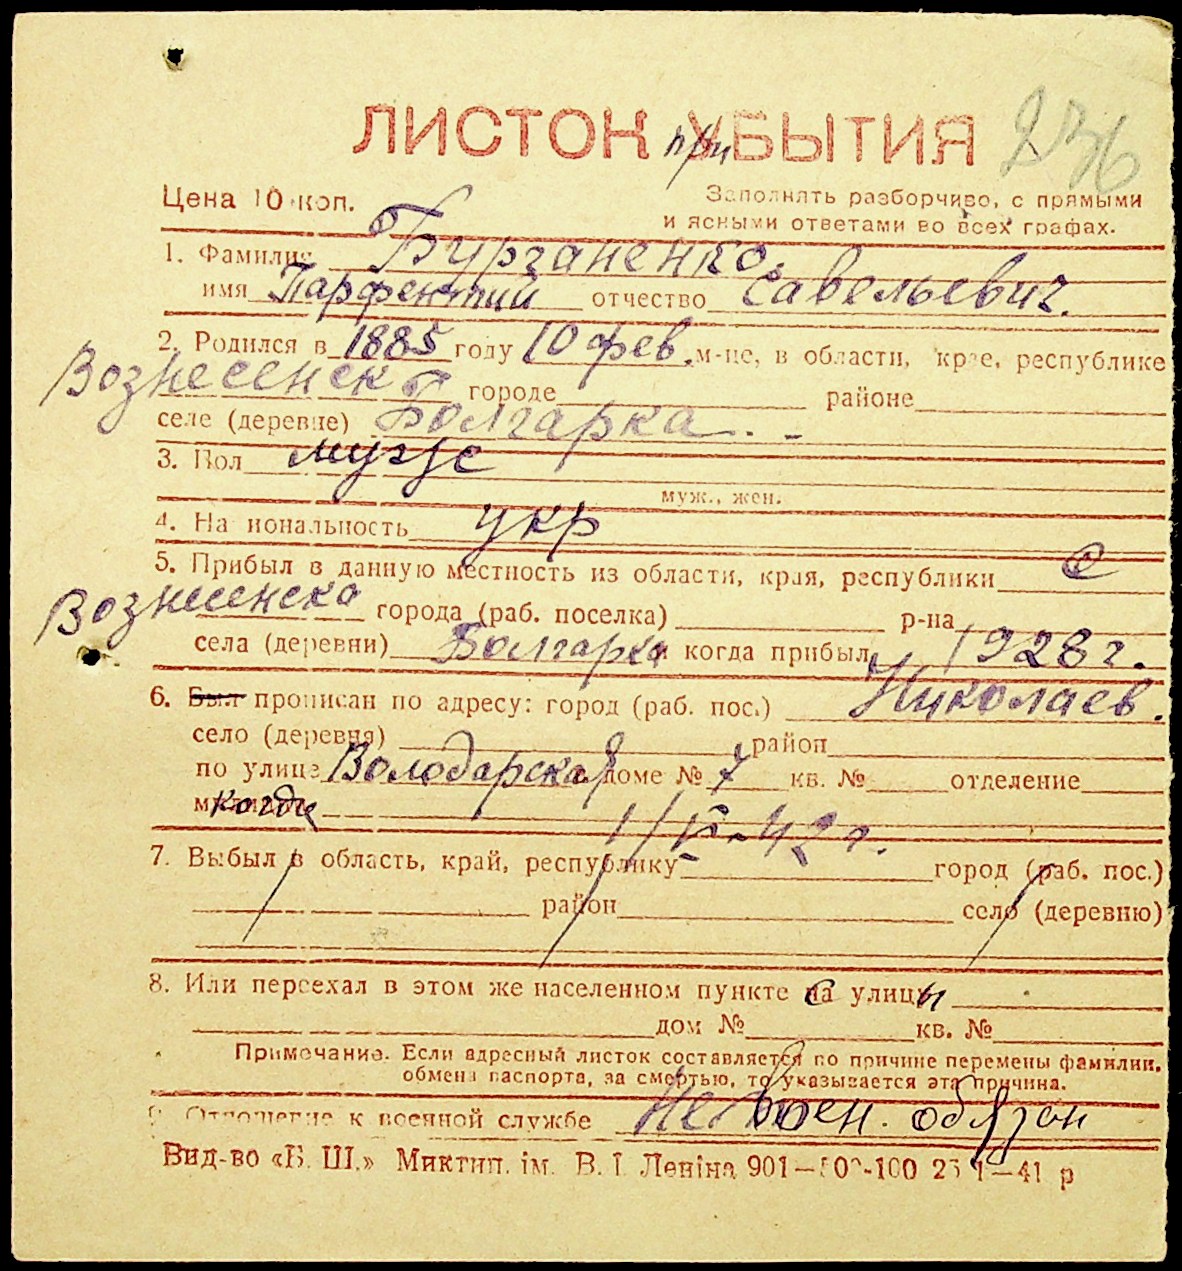 ЛИСТОК при УБЫТИЯ 236
Цена 10 коп. Заполнять разборчиво, с прямыми
и ясными ответами во всех графах.
1. Фамилия Бурганенко
имя Парфентий отчество Савельевич.
2. Родился в 1885 году 10 фев. м-це, в области, крае, республике
Вознесенск городе районе
селе (деревне) Болгарка
3. Пол муж
муж., жен.
4. Национальность укр
5. Прибыл в данную местность из области, края, республики с
Вознесенска города (раб. поселка) р-на
села (деревни) Болгарка и когда прибыл 1928 г.
6. Был прописан по адресу: город (раб. пос.) Николаев.
село (деревня) район
по улице Володарская доме № 7 кв. № отделение
милиции когда 1/VI-42 г.
7. Выбыл в область, край, республику город (раб. пос.)
район село (деревню)
8. Или переехал в этом же населенном пункте с на улицы
дом № кв. №
Примечание. Если адресный листок составляется по причине перемены фамилии,
обмена паспорта, за смертью, то указывается эта причина.
9. Отношение к военной службе воен. обязан
Вид-во «Б. Ш.» Миктип. ім. В. І. Леніна 901—500-100 41 р